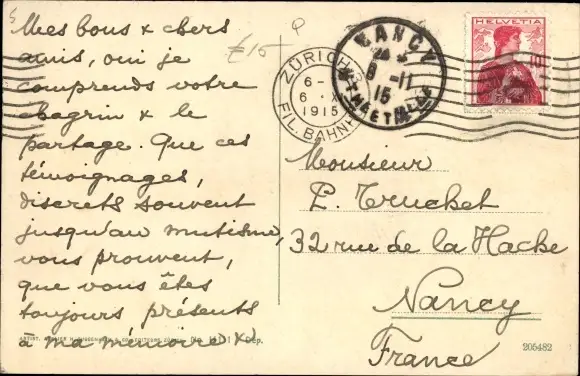 5
Mes bons & chers
amis, oui je
comprends votre
chagrin & le
partage. Que ces
témoignages,
discrets souvent
jusqu'au mutisme,
vous prouvent,
que vous êtes
toujours présents
à ma mémoire
£15
ZÜRICH
6-
6
1915
FIL. BAHNH
NANCY
8-11
15
MTHE ET MLLE
HELVETIA
10
Monsieur
P. Truchet
32 rue de la Hache
Nancy
France
205482